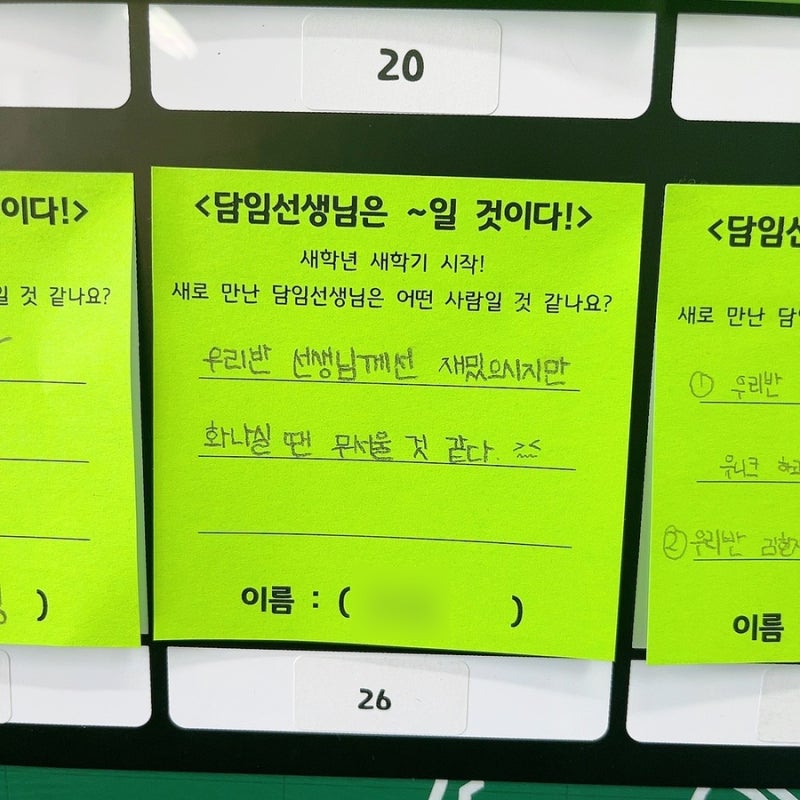 20
이다!>
일 것 같나요?
)
<담임선생님은 ~일 것이다!>
새학년 새학기 시작!
새로 만난 담임선생님은 어떤 사람일 것 같나요?
우리반 선생님께선 재밌으시지만
화나실 땐 무서울 것 같다. ><
이름 : ( )
<담임선
새로 만난 담
① 우리반
② 우리반
이름
26